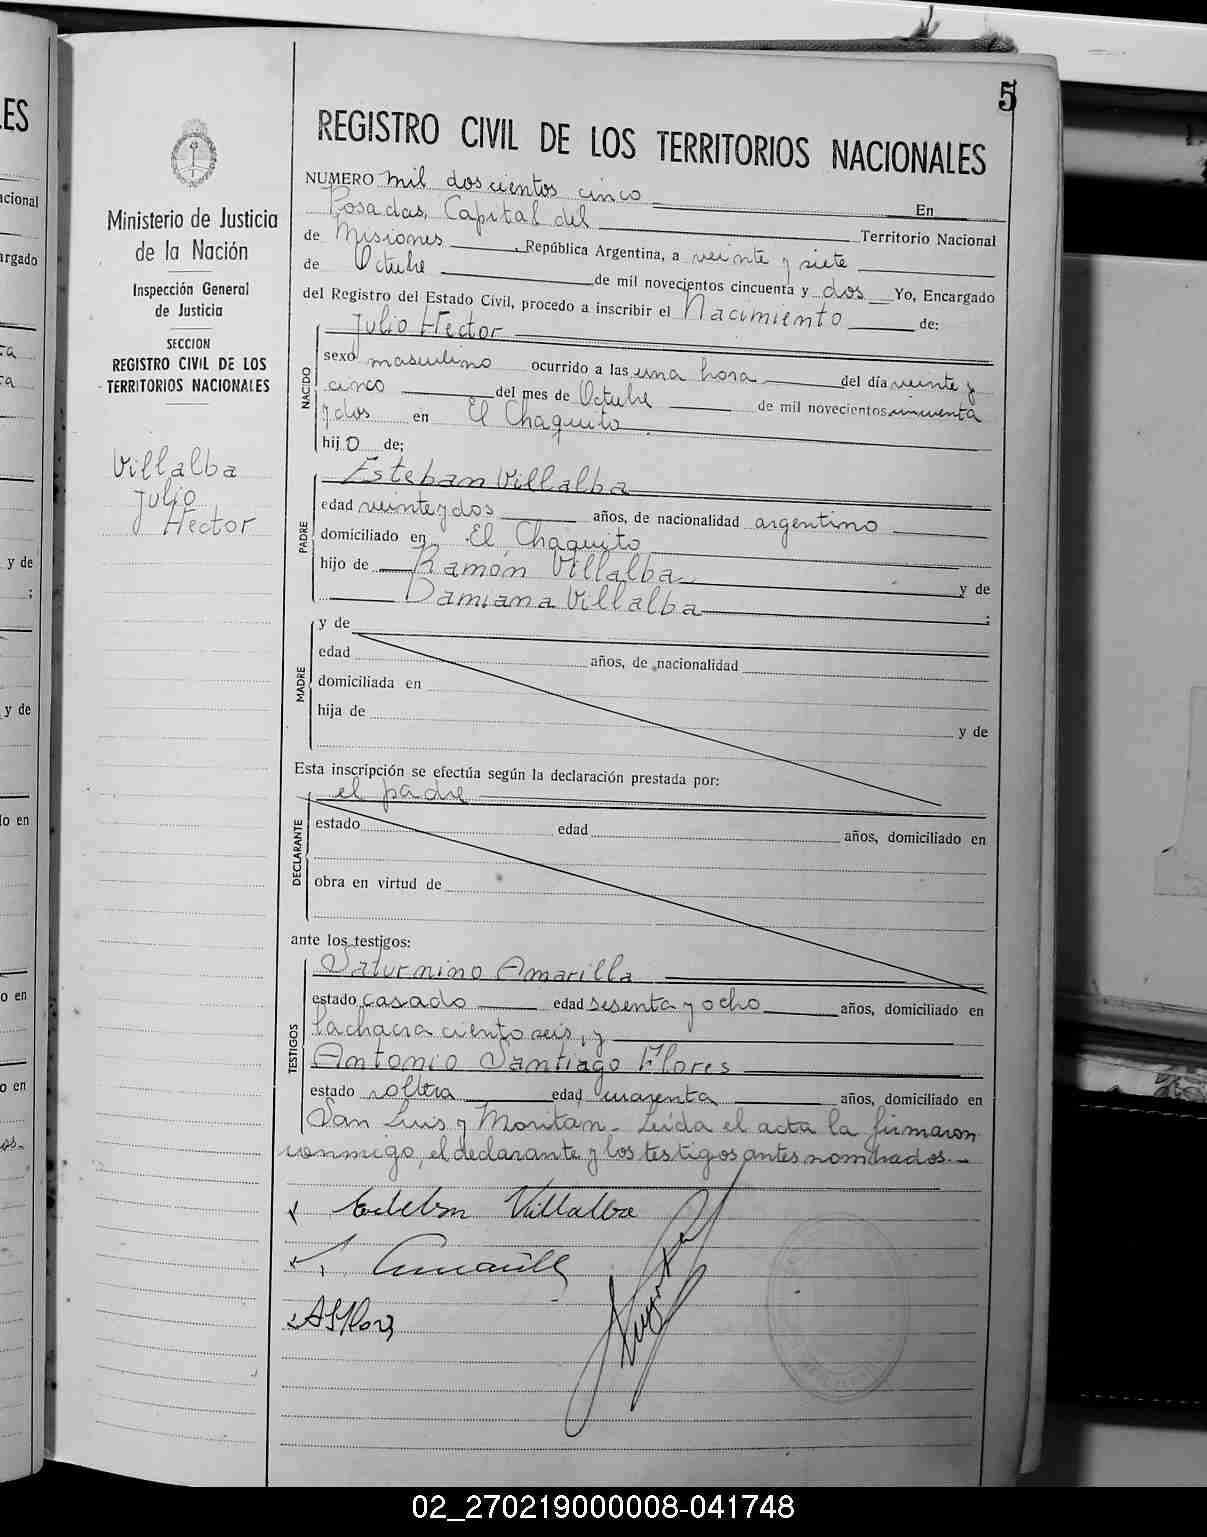 5
REGISTRO CIVIL DE LOS TERRITORIOS NACIONALES
Ministerio de Justicia
de la Nación
Inspección General
de Justicia
SECCION
REGISTRO CIVIL DE LOS
TERRITORIOS NACIONALES
Villalba
Julio
Hector
NUMERO mil doscientos cinco En
Posadas, Capital del Territorio Nacional
de Misiones, República Argentina, a veinte y siete
de Octubre de mil novecientos cincuenta y dos Yo, Encargado
del Registro del Estado Civil, procedo a inscribir el Nacimiento de:
Julio Hector
NACIDO
sexo masculino ocurrido a las una hora del día veinte y
cinco del mes de Octubre de mil novecientos cincuenta
y dos en El Chaquito
hijo de;
Esteban Villalba
PADRE
edad veinte y dos años, de nacionalidad argentino
domiciliado en El Chaquito
hijo de Ramón Villalba y de
Damiana Villalba;
MADRE
y de
edad años, de nacionalidad
domiciliada en
hija de y de
Esta inscripción se efectúa según la declaración prestada por:
el padre
DECLARANTE
estado edad años, domiciliado en
obra en virtud de
ante los testigos:
Saturnino Amarilla
TESTIGOS
estado casado edad sesenta y ocho años, domiciliado en
la chacra ciento seis, y
Antonio Santiago Flores
estado soltero edad cuarenta años, domiciliado en
San Luis y Moritan. Leída el acta la firmaron
conmigo, el declarante y los testigos antes nombrados.-
Esteban Villalba
Amarilla
ASFlores
ES
cional
argado
y de
;
y de
lo en
o en
o en
02_270219000008-041748